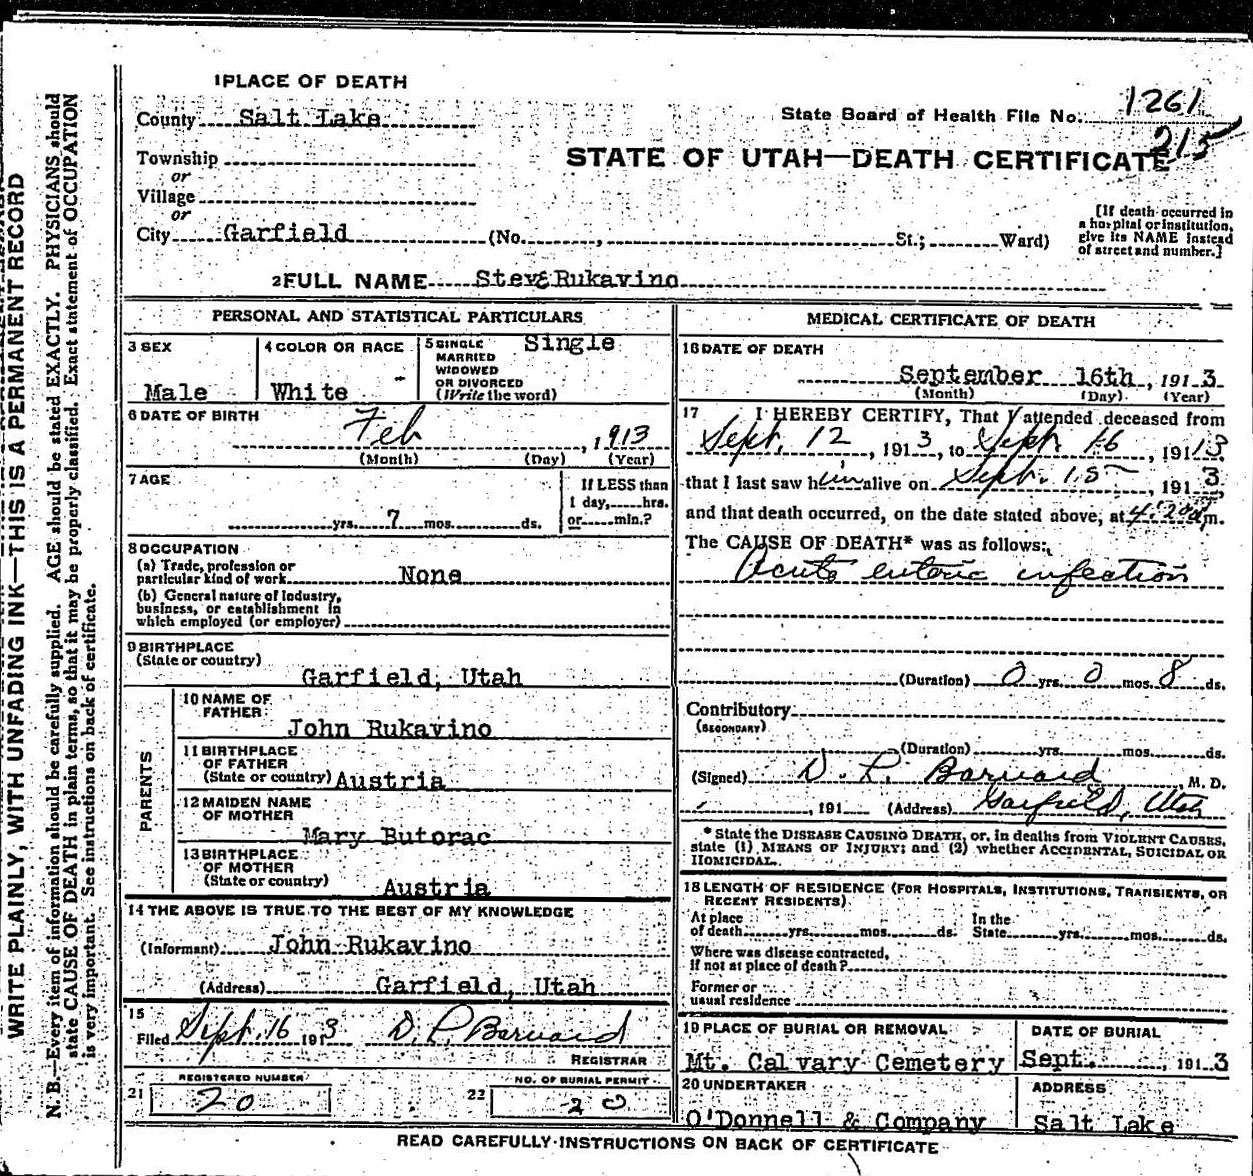 WRITE PLAINLY, WITH UNFADING INK—THIS IS A PERMANENT RECORD
N. B.—Every item of information should be carefully supplied. AGE should be stated EXACTLY. PHYSICIANS should
state CAUSE OF DEATH in plain terms, so that it may be properly classified. Exact statement of OCCUPATION
is very important. See instructions on back of certificate.
1 PLACE OF DEATH
County Salt Lake
State Board of Health File No. 1261
215
Township
or
STATE OF UTAH—DEATH CERTIFICATE
Village
or
City Garfield (No. , St.; Ward)
[If death occurred in
a hospital or institution,
give its NAME instead
of street and number.]
2 FULL NAME Steve Rukavino
PERSONAL AND STATISTICAL PARTICULARS
3 SEX
Male
4 COLOR OR RACE
White
5 SINGLE
MARRIED
WIDOWED
OR DIVORCED
(Write the word)
Single
6 DATE OF BIRTH
Feb , 1913
(Month) (Day) (Year)
7 AGE
yrs. 7 mos. ds.
If LESS than
1 day, hrs.
or min.?
8 OCCUPATION
(a) Trade, profession or
particular kind of work None
(b) General nature of Industry,
business, or establishment in
which employed (or employer)
9 BIRTHPLACE
(State or country)
Garfield, Utah
PARENTS
10 NAME OF
FATHER
John Rukavino
11 BIRTHPLACE
OF FATHER
(State or country) Austria
12 MAIDEN NAME
OF MOTHER
Mary Butorac
13 BIRTHPLACE
OF MOTHER
(State or country)
Austria
14 THE ABOVE IS TRUE TO THE BEST OF MY KNOWLEDGE
(Informant) John Rukavino
(Address) Garfield, Utah
15
Filed Sept. 16 1913 D. L. Barnard
REGISTRAR
21 REGISTERED NUMBER
20
22 NO. OF BURIAL PERMIT
20
MEDICAL CERTIFICATE OF DEATH
16 DATE OF DEATH
September 16th , 1913
(Month) (Day) (Year)
17 I HEREBY CERTIFY, That I attended deceased from
Sept. 12 , 1913, to Sept. 16 , 1913.
that I last saw him alive on Sept. 15 , 1913
and that death occurred, on the date stated above, at 4:20 am.
The CAUSE OF DEATH* was as follows:
Acute enteric infection
(Duration) 0 yrs. 0 mos. 8 ds.
Contributory
(SECONDARY)
(Duration) yrs. mos. ds.
(Signed) D. L. Barnard M. D.
, 191 (Address) Garfield, Utah
* State the DISEASE CAUSING DEATH, or, in deaths from VIOLENT CAUSES,
state (1) MEANS OF INJURY; and (2) whether ACCIDENTAL, SUICIDAL OR
HOMICIDAL.
18 LENGTH OF RESIDENCE (FOR HOSPITALS, INSTITUTIONS, TRANSIENTS, OR
RECENT RESIDENTS)
At place In the
of death yrs. mos. ds. State yrs. mos. ds.
Where was disease contracted,
If not at place of death?
Former or
usual residence
19 PLACE OF BURIAL OR REMOVAL
Mt. Calvary Cemetery
DATE OF BURIAL
Sept. , 1913
20 UNDERTAKER
O'Donnell & Company
ADDRESS
Salt Lake
READ CAREFULLY INSTRUCTIONS ON BACK OF CERTIFICATE